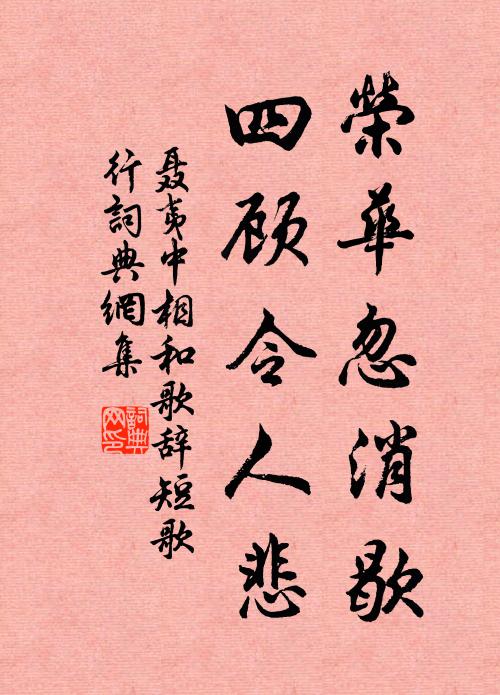 榮華忽消歇
四顾令人悲
聂夷中相和歌辞短歌
行詞典網集
詞典
网印